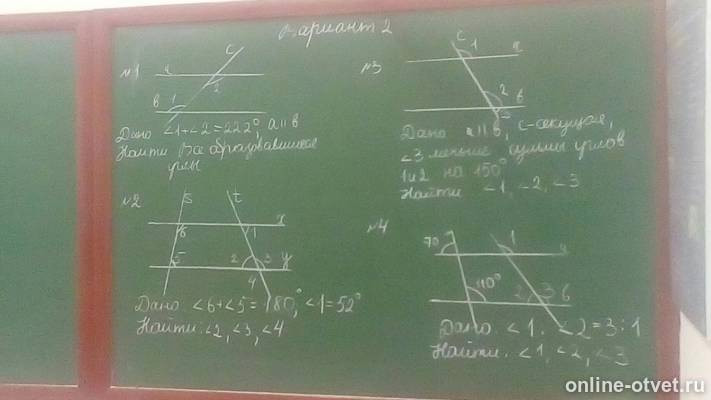 Вариант 2
№1
c
a
2
в
1
Дано ∠1+∠2=222°, a॥в
Найти Все образовавшиеся
углы
№2
s
t
x
6
1
5
2
3
y
4
Дано: ∠6+∠5=180°, ∠1=52°
Найти: ∠2, ∠3, ∠4
№3
c
1
a
2
в
3
Дано a॥в, c-секущая,
∠3 меньше суммы углов
1и2 на 150°
Найти ∠1, ∠2, ∠3
№4
70
1
a
110°
2
3
в
Дано. ∠1. ∠2=3:1
Найти. ∠1, ∠2, ∠3
online-otvet.ru